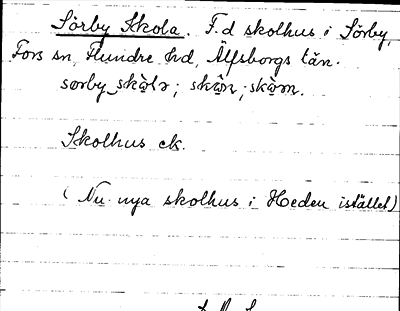 Sörby Skola. F.d skolhus i Sörby,
Fors sn, Flundre hd, Älfsborgs län.
sørby skὰlə; skὰn; skὰən.
Skolhus ek.
(Nu nya skolhus i Heden istället)